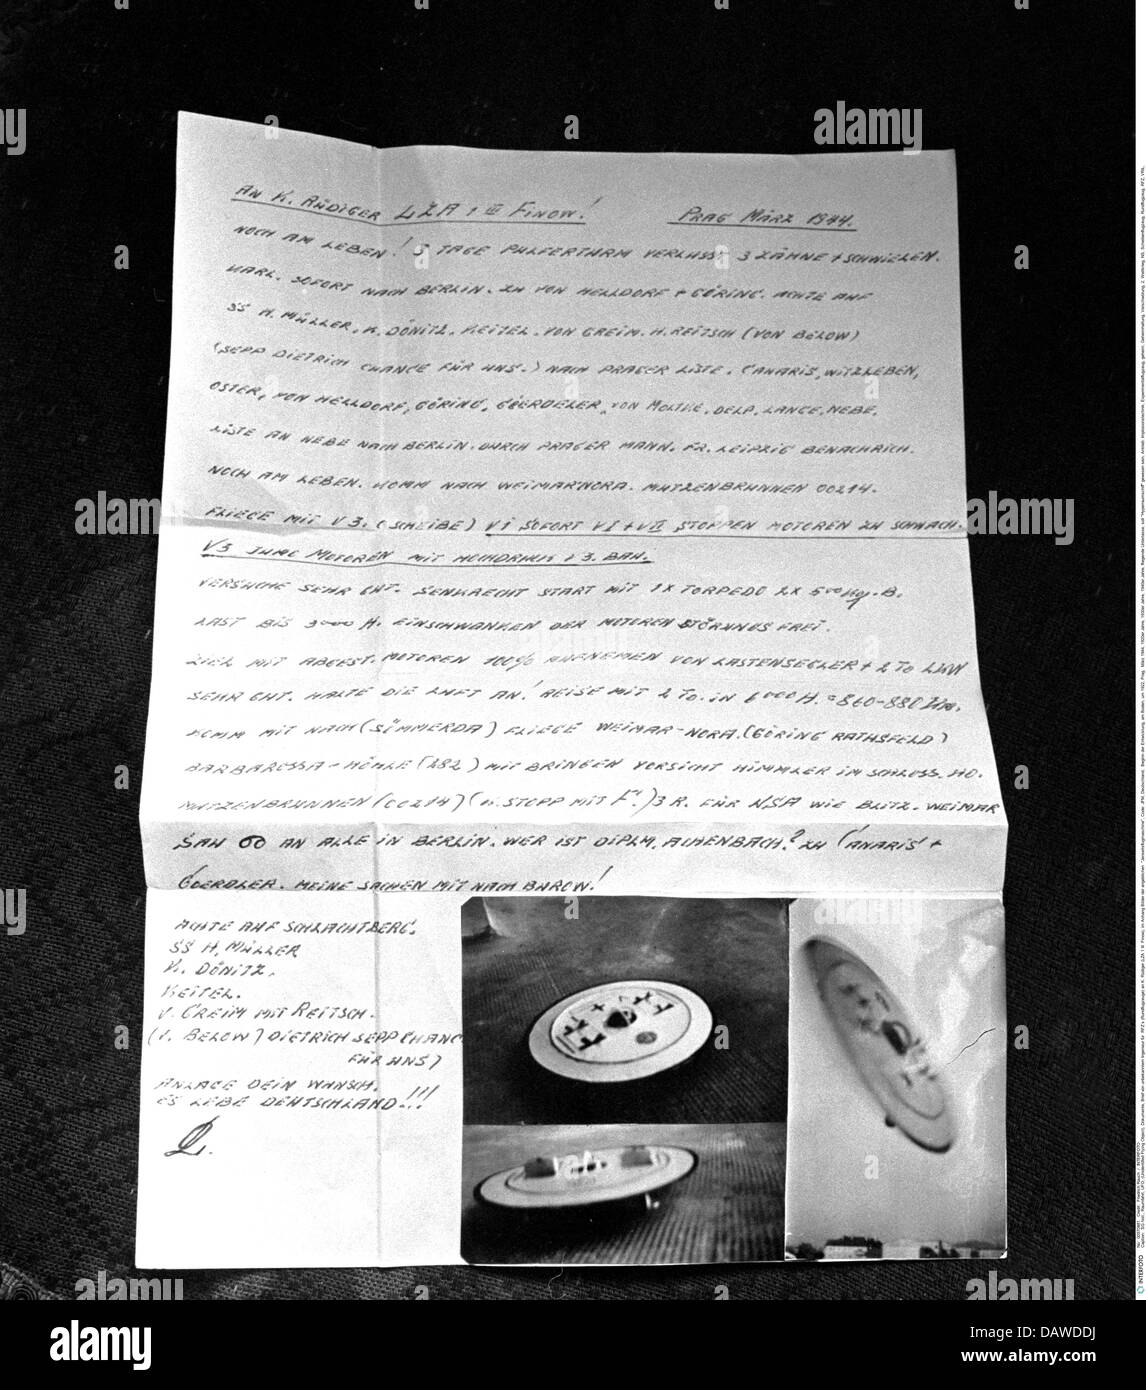 AN K. RÜDIGER LZA 1 III FINOW! PRAG MÄRZ 1944.
NOCH AM LEBEN! 5 TAGE PULFERTURM VERLUSST 3 ZÄHNE + SCHWIELEN.
KARL. SOFORT NACH BERLIN. ZU VON HELLDORF + GÖRING. ACHTE AUF
SS H. MÜLLER, K. DÖNITZ. KEITEL. VON GREIM. H. REITSCH (VON BELOW)
(SEPP DIETRICH CHANCE FÜR UNS.) NACH PRAGER LISTE. CANARIS, WITZLEBEN,
OSTER, VON HELLDORF, GÖRING, GÖERDELER, VON MOLTKE. DELP. LANGE. NEBE.
LISTE AN NEBE NACH BERLIN. DURCH PRAGER MANN. FR. LEIPZIG BENACHRICH.
NOCH AM LEBEN. KOMM NACH WEIMAR NORA. MUTZENBRUNNEN 00214.
FLIEGE MIT V3. (SCHEIBE) V1 SOFORT VI + VII STOPPEN MOTOREN ZU SCHWACH.
V3 JUMO MOTOREN MIT HOCHDRUCK 13. BAU.
VERSUCHE SEHR GUT. SENKRECHT START MIT 1X TORPEDO 2X 500 KG. B.
LAST BIS 3000 H. EINSCHWANKEN DER MOTOREN STÖRUNGS FREI.
ZIEL MIT ABGEST. MOTOREN 100% AUFNEMEN VON LASTENSEGLER + 2 TO LKW
SEHR GUT. HALTE DIE LUFT AN! REISE MIT 2 TO. IN 6000 H. = 860-880 Km.
KOMM MIT NACH (SÖMMERDA) FLIEGE WEIMAR-NORA. (GÖRING RATHSFELD)
BARBAROSSA-HÖHLE (282) MIT BRINGEN VORSICHT HIMMLER IM SCHLOSS. HO.
MUTZENBRUNNEN (00214) (K. STOPP MIT F!.) 3 R. FÜR USA WIE BLITZ. WEIMAR
SAH AN ALLE IN BERLIN. WER IST DIPLM. ACHENBACH? ZU CANARIS +
GOERDLER. MEINE SACHEN MIT NACH BAROW!
ACHTE AUF SCHLACHTBERG.
SS H. MÜLLER
K. DÖNITZ.
KEITEL.
V. GREIM MIT REITSCH.
(V. BELOW) DIETRICH SEPP CHANC
FÜR UNS)
ANLAGE DEIN WUNSCH.
ES LEBE DEUTSCHLAND!!!
alamy
alamy stock photo
INTERFOTO
Image ID: DAWDDJ
www.alamy.com